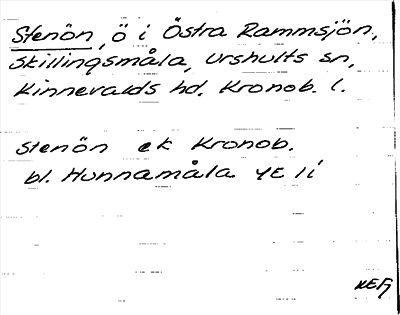 Stenön, ö i Östra Rammsjön,
Skillingsmåla, Urshults sn,
Kinnevalds hd, Kronob. l.
Stenön ek Kronob.
bl. Hunnamåla 4E 1i